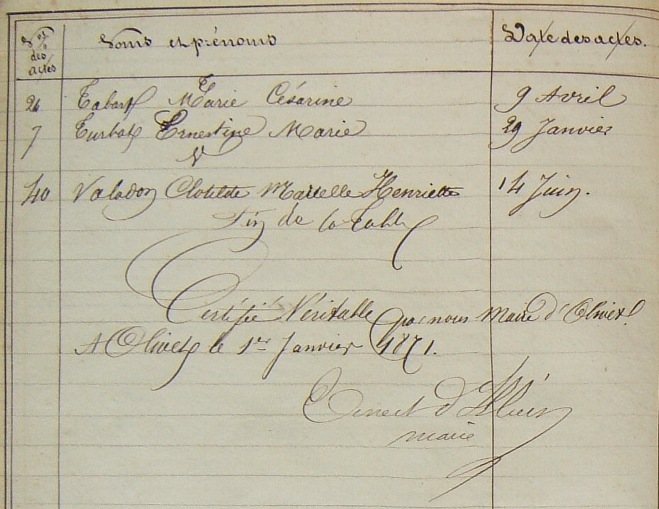 Nos des actes Noms et prénoms Date des actes.
26 Tabart Marie Césarine 9 Avril
7 Turbat Ernestine Marie 29 Janvier
V
40 Valadon Clotilde Marcelle Henriette 14 Juin.
Fin de la Table
Certifié Véritable par nous Maire d'Olivet.
A Olivet le 1er Janvier 1871.
Ernest d'
maire